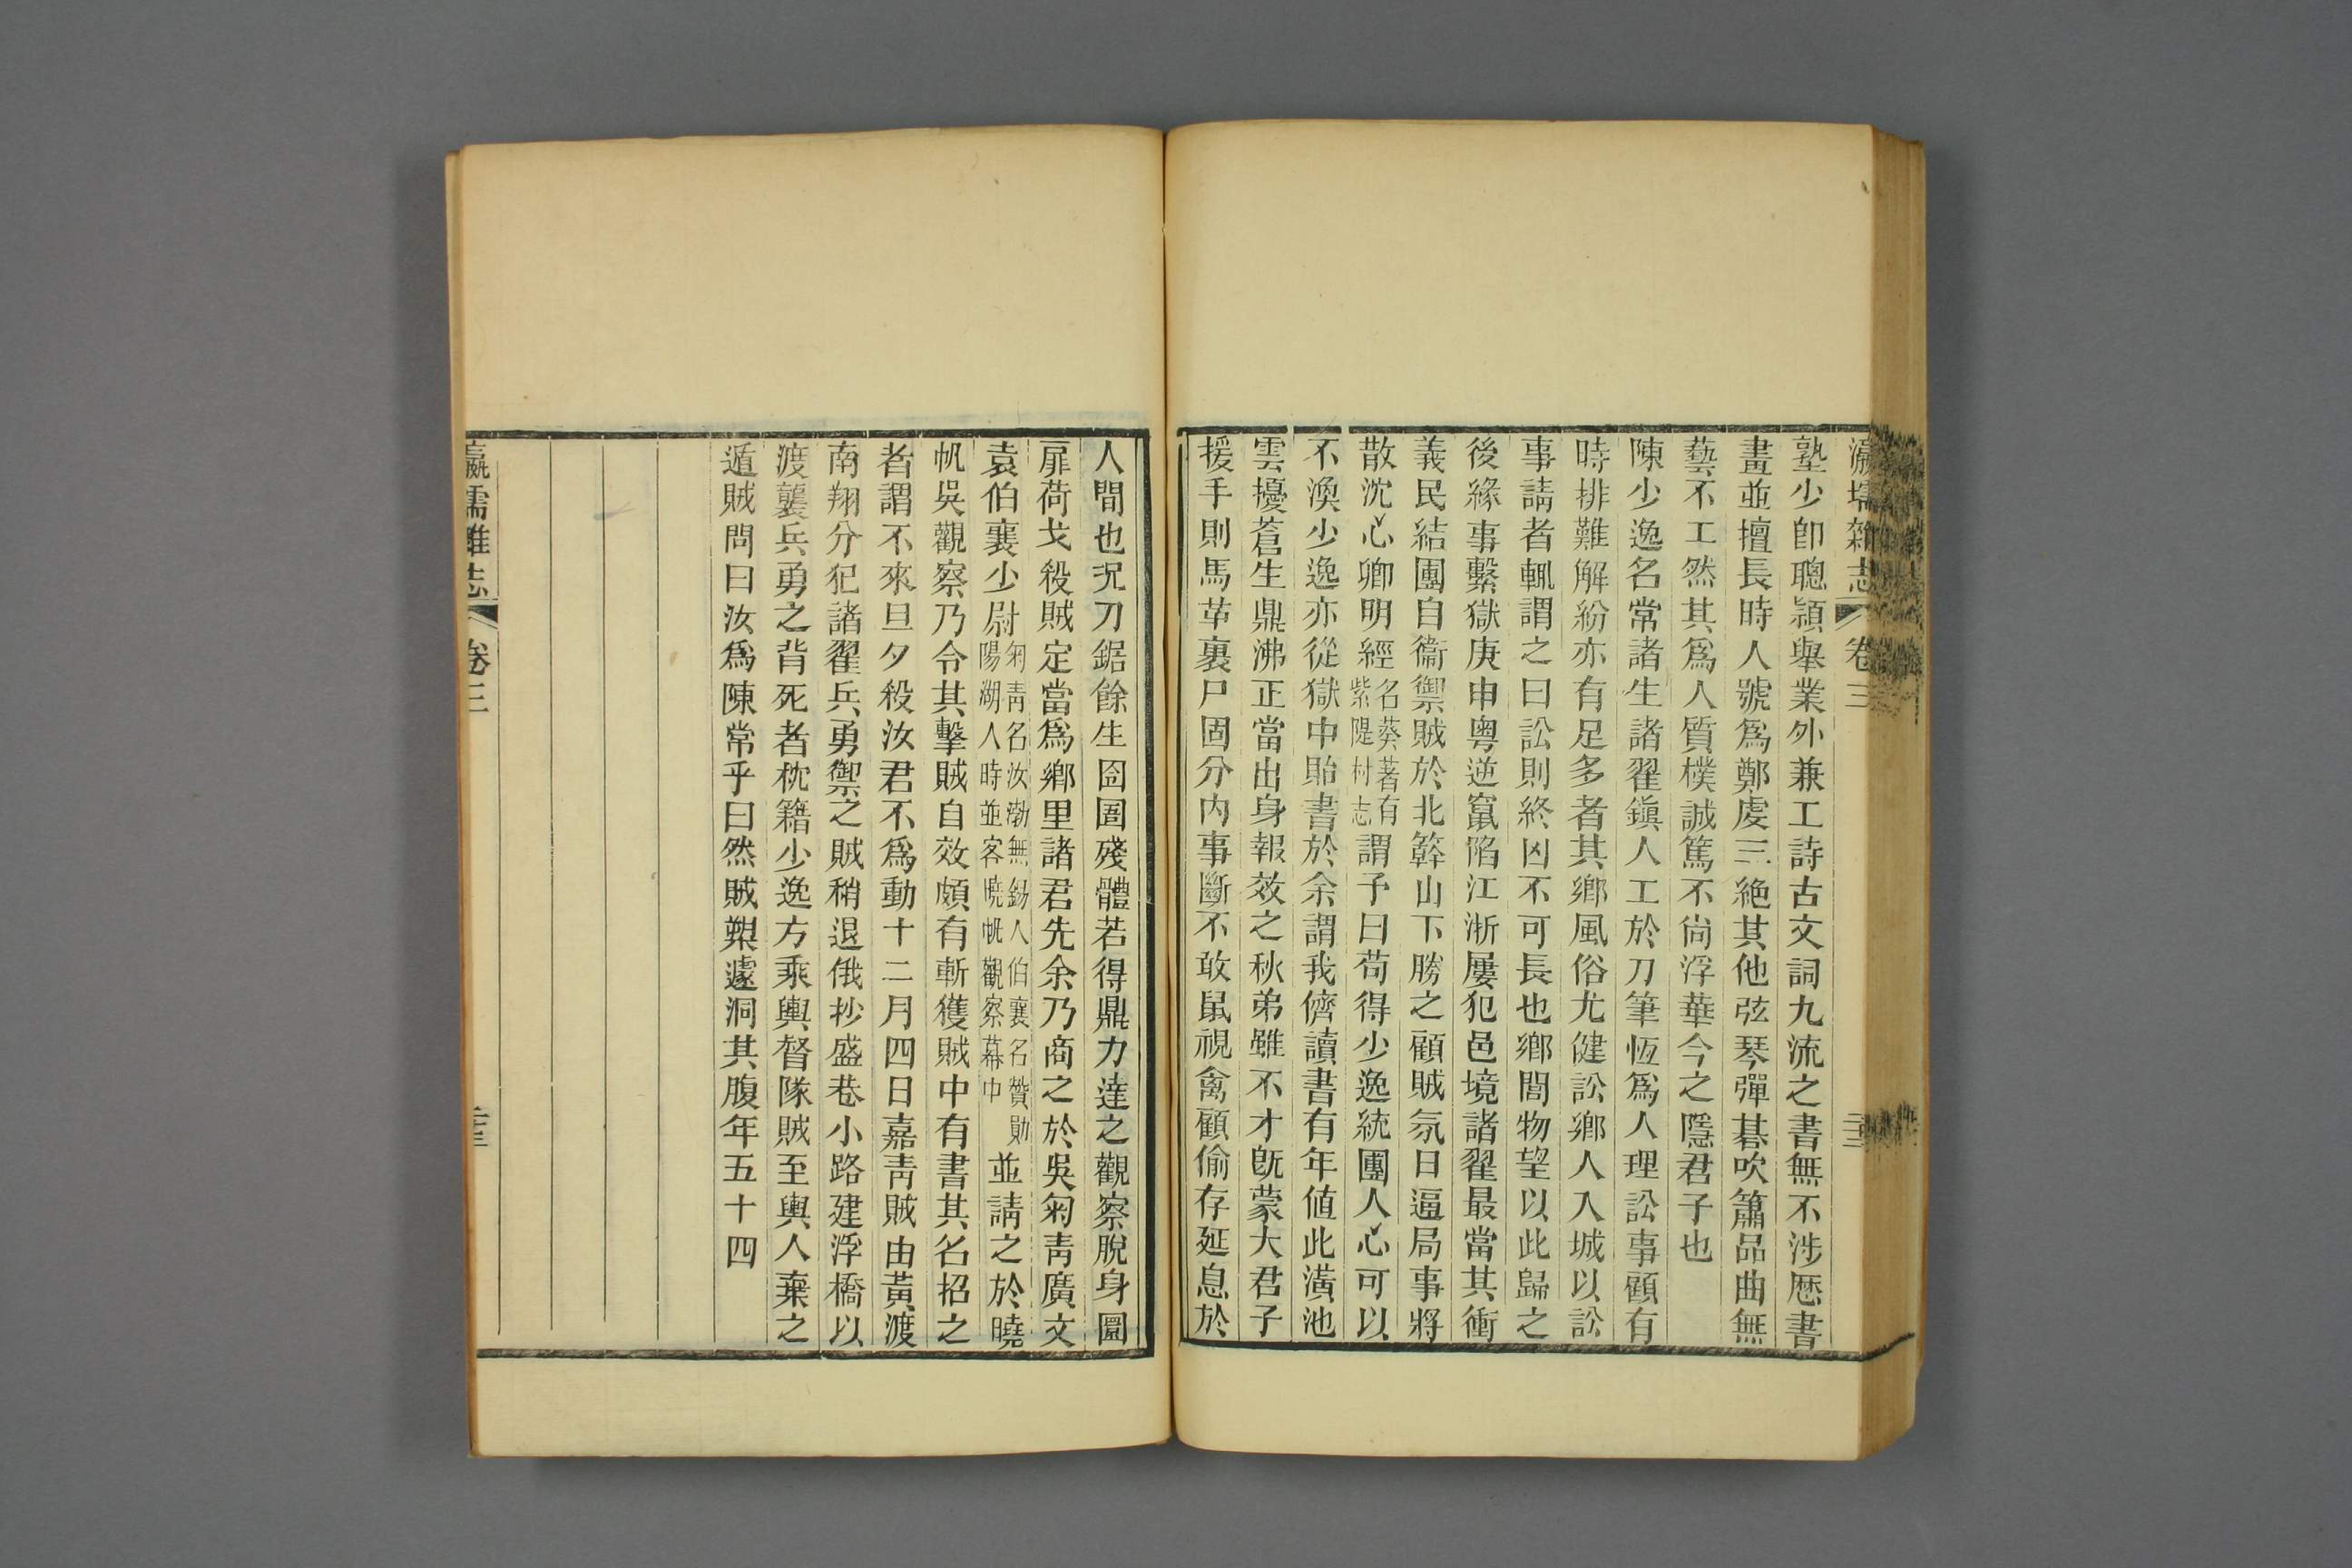 瀛壖雜志 卷三
塾少卽聰穎舉業外兼工詩古文詞九流之書無不涉歷書
畫並擅長時人號爲鄭虔三絕其他弦琴彈棊吹簫品曲無
藝不工然其爲人質樸誠篤不尙浮華今之隱君子也
陳少逸名常諸生諸翟鎭人工於刀筆恆爲人理訟事顧有
時排難解紛亦有足多者其鄉風俗尤健訟鄉人入城以訟
事請者輒謂之曰訟則終凶不可長也鄉閭物望以此歸之
後緣事繫獄庚申粵逆竄陷江浙屢犯邑境諸翟最當其衝
義民結團自衞禦賊於北簳山下勝之顧賊氛日逼局事將
散沈心卿明經名葵著有紫隄村志謂予曰苟得少逸統團人心可以
不渙少逸亦從獄中貽書於余謂我儕讀書有年値此潢池
雲擾蒼生鼎沸正當出身報效之秋弟雖不才旣蒙大君子
援手則馬革裹尸固分内事斷不敢鼠視禽顧偷存延息於
人間也況刀鋸餘生囹圄殘體若得鼎力達之觀察脫身圜
扉荷戈殺賊定當爲鄉里諸君先余乃商之於吳菊靑廣文
袁伯襄少尉菊靑名汝渤無錫人伯襄名贊勛陽湖人時並客曉帆觀察幕中並請之於曉
帆吳觀察乃令其擊賊自效頗有斬獲賊中有書其名招之
者謂不來旦夕殺汝君不爲動十二月四日嘉靑賊由黃渡
南翔分犯諸翟兵勇禦之賊稍退俄抄盛巷小路建浮橋以
渡襲兵勇之背死者枕籍少逸方乘輿督隊賊至輿人棄之
遁賊問曰汝爲陳常乎曰然賊槊遽洞其腹年五十四
瀛壖雜志 卷三